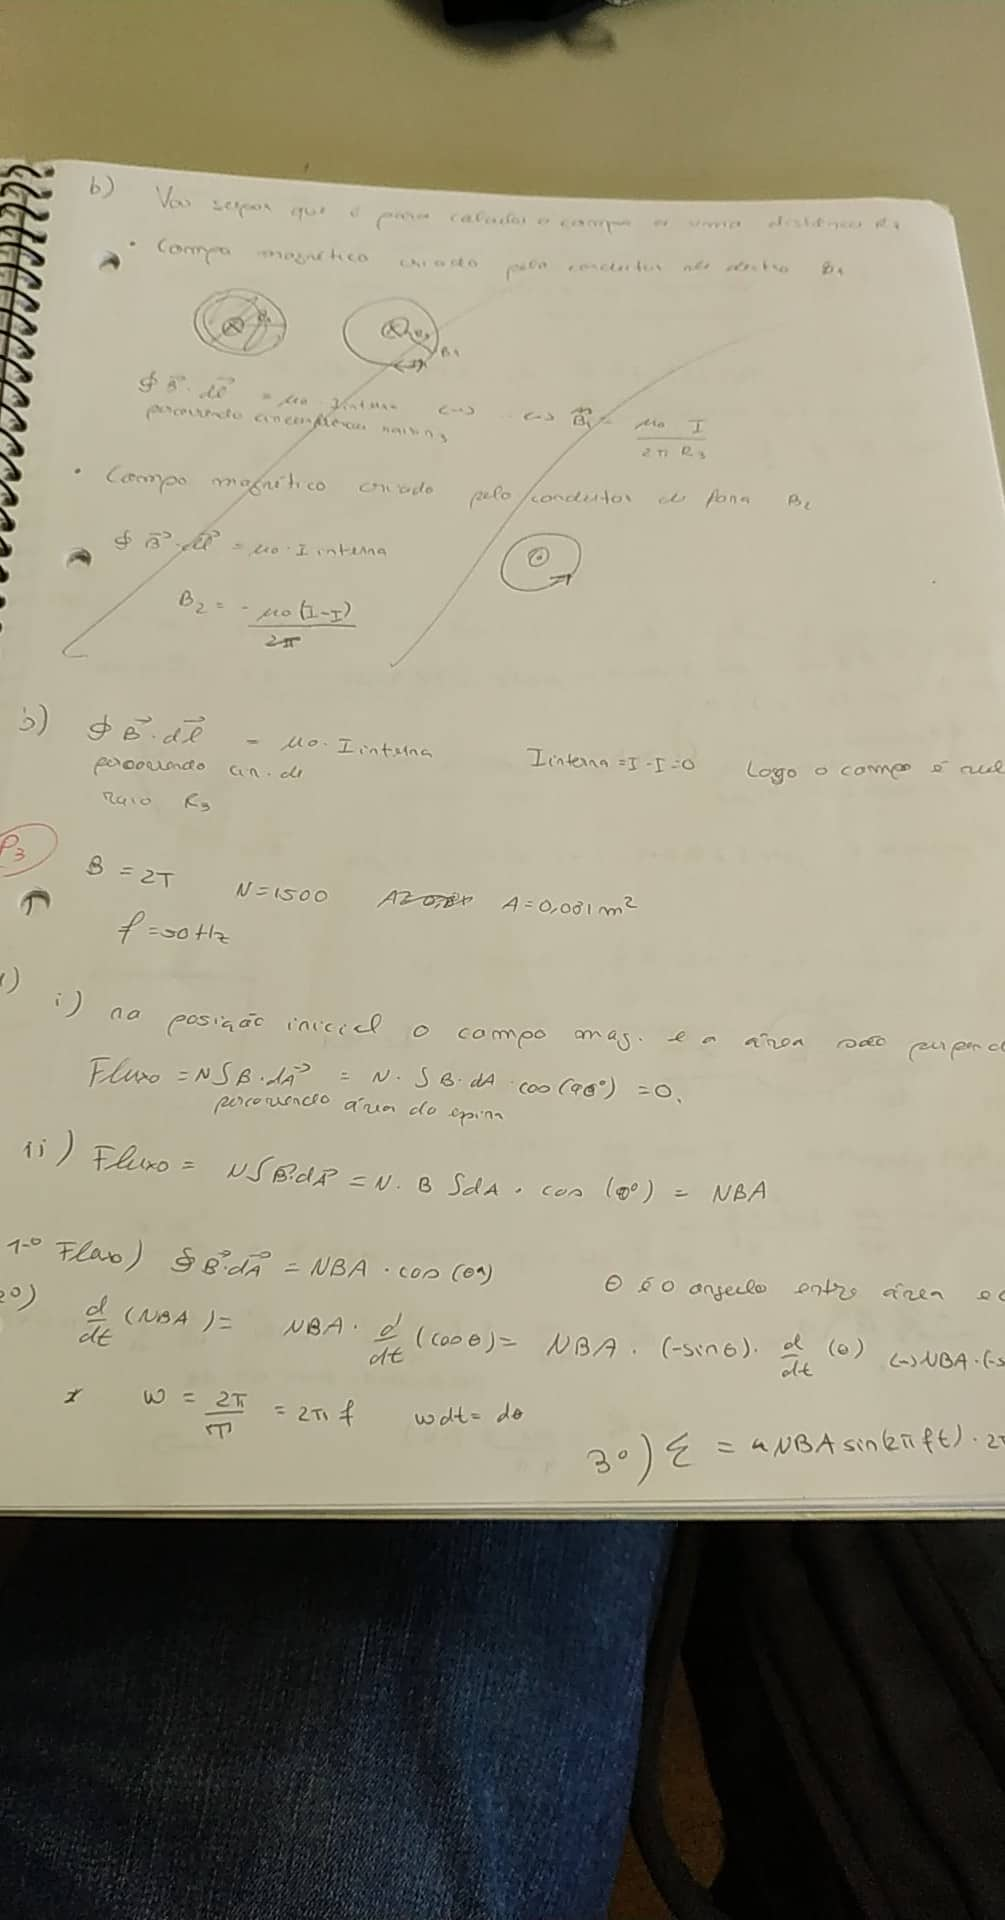 b) Vou supor que é para calcular o campo a uma distância R3
• Campo magnético criado pelo condutor de dentro B1
∮ B⃗ . dl⃗ = μ0 Iinterna <-> <-> B1 = μ0 I / 2π R3
percorrendo circunferência
• Campo magnético criado pelo condutor de fora B2
∮ B⃗ . dl⃗ = μ0 . I interna
B2 = - μ0 (I-I) / 2π
b) ∮ B⃗ . dl⃗ = μ0 . I interna I interna = I - I = 0 Logo o campo é
percorrendo cir. de
raio R3
P3
B = 2T N = 1500 A = 0,031 m²
f = 50 Hz
i) na posição inicial o campo mag. e a área são
Fluxo = N ∫ B . dA⃗ = N . ∫ B . dA . cos (90°) = 0.
percorrendo área do
ii) Fluxo = N ∫ B⃗ . dA⃗ = N . B ∫ dA . cos (0°) = NBA
1-º Fluxo) ∮ B⃗ . dA⃗ = NBA . cos (θ) θ é o angulo entre área e
2º) d/dt (NBA) = NBA . d/dt (cos θ) = NBA . (-sin θ) . d/dt (θ) <-> NBA . (-s
w = 2π/T = 2π f wdt = dθ
3º) Ɛ = NBA sin(2π f t) . 2